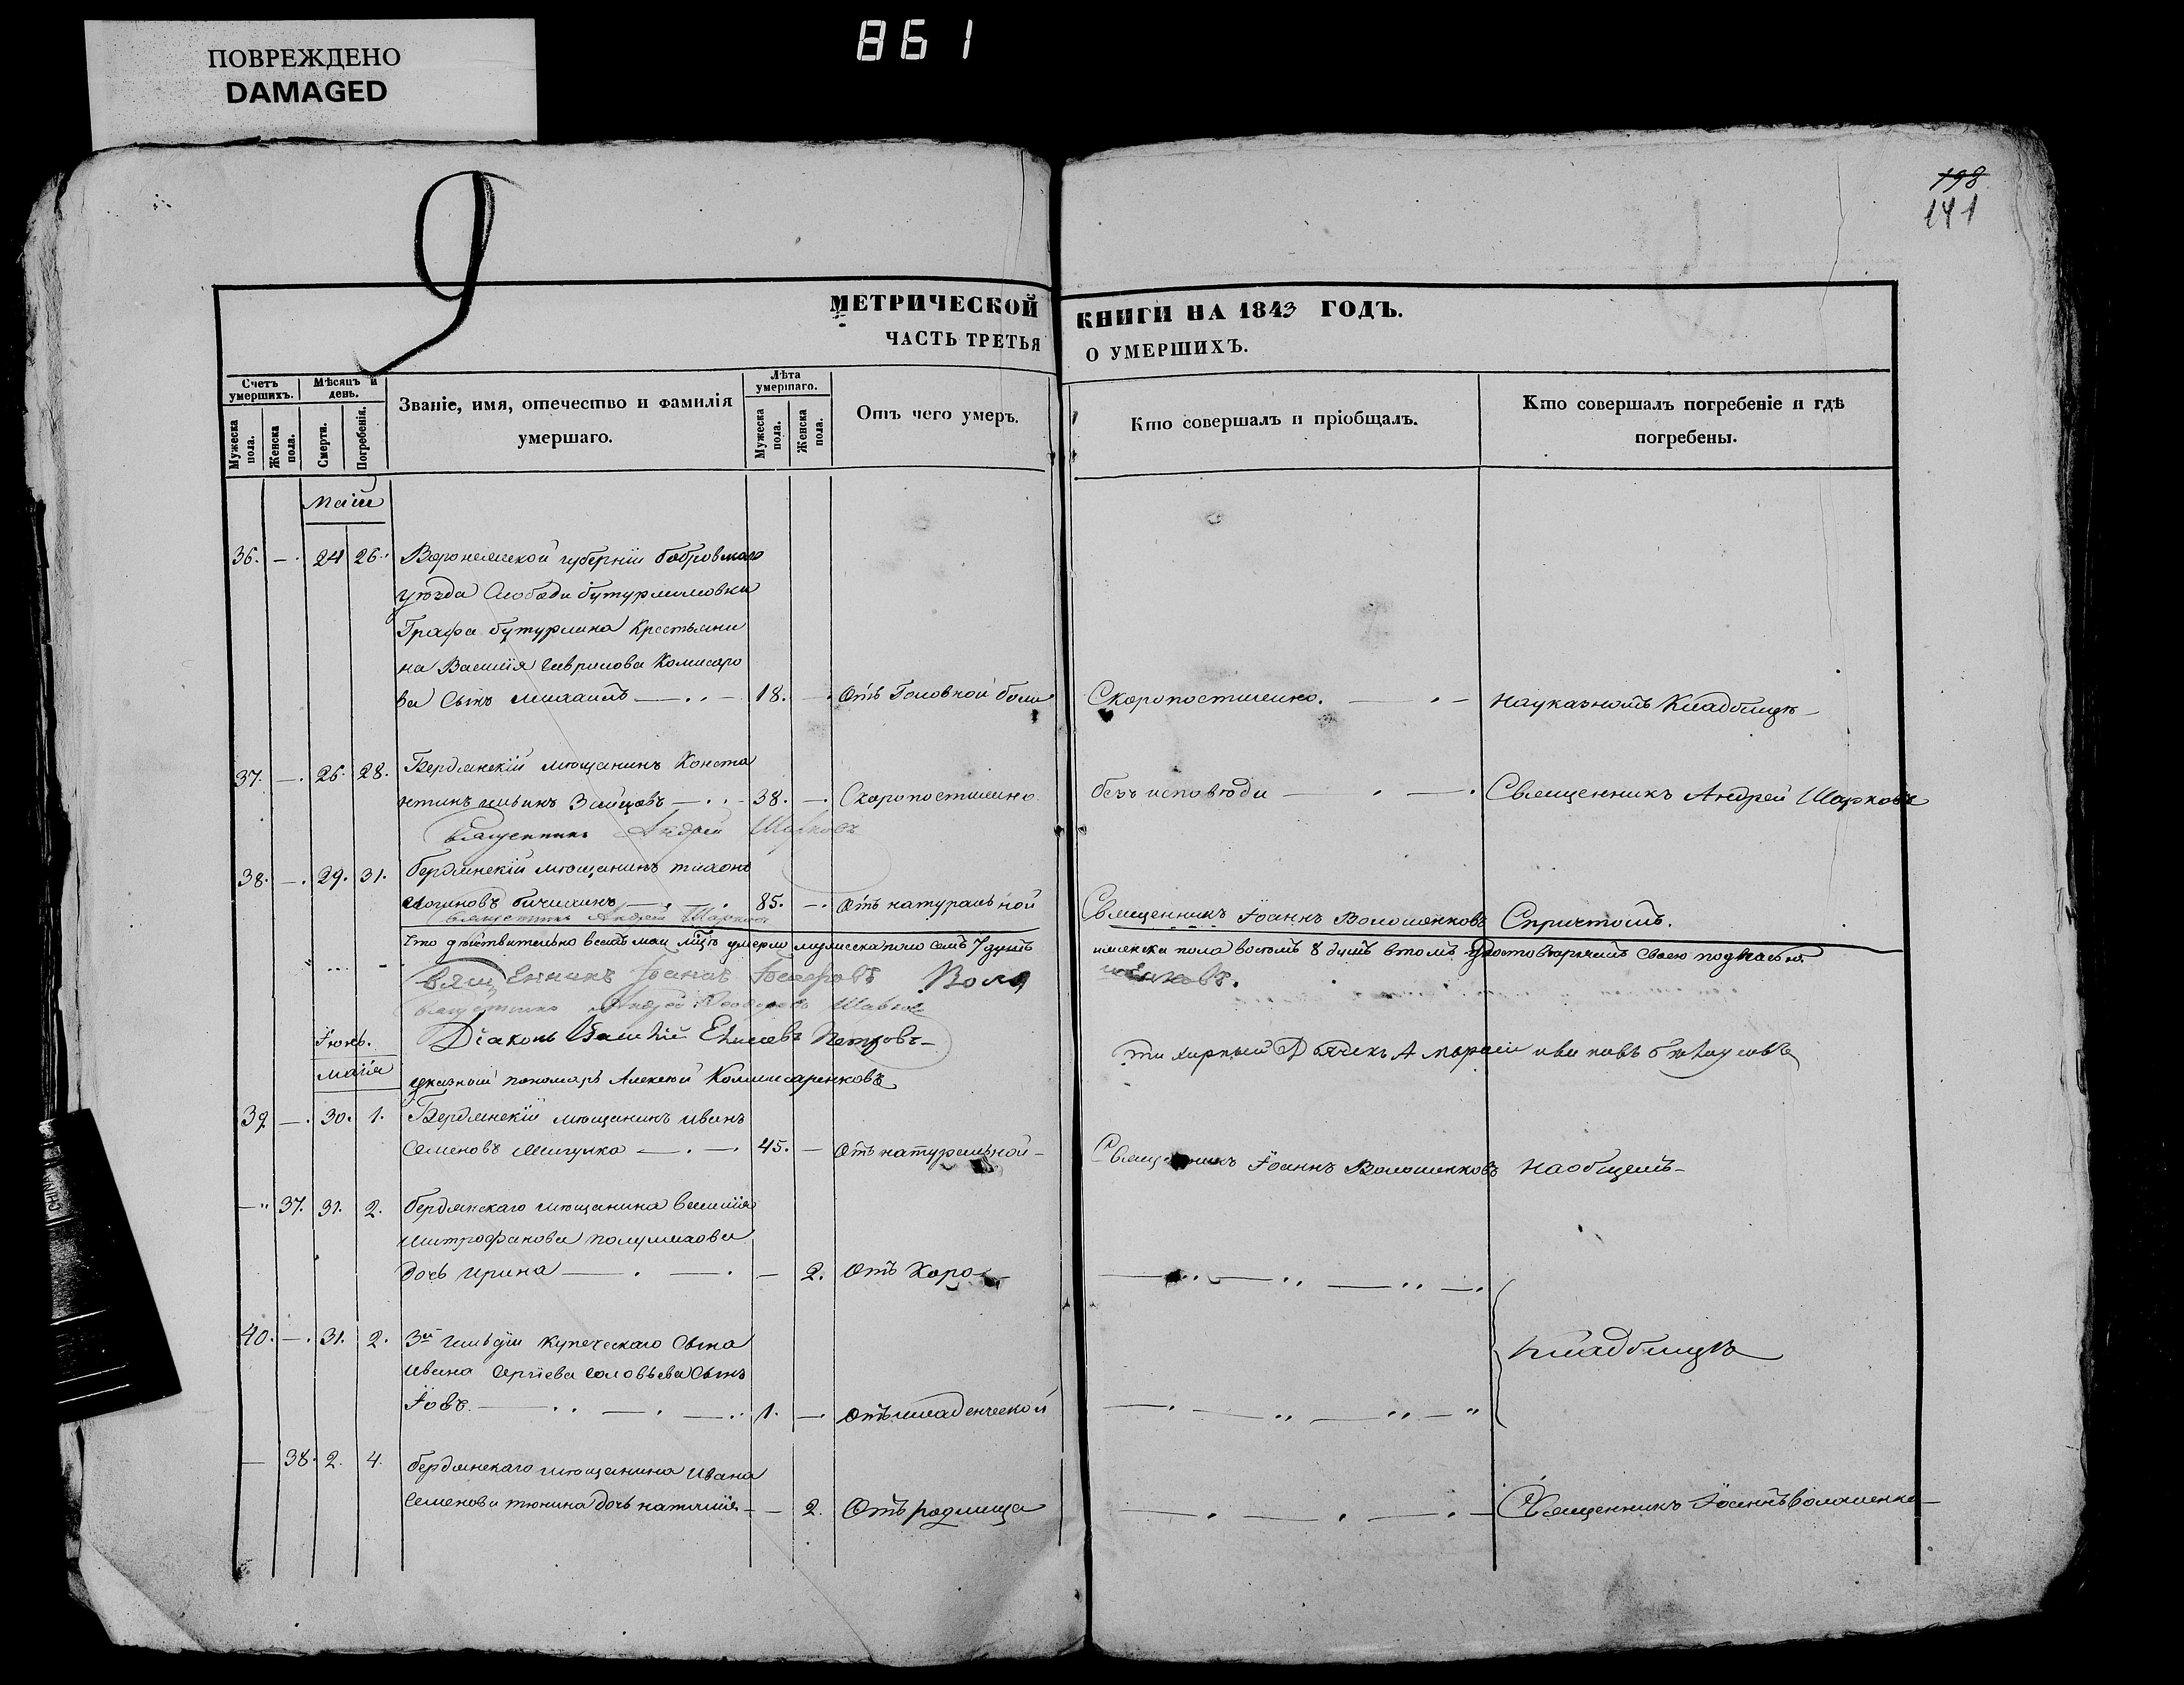 ПОВРЕЖДЕНО
DAMAGED
861
9
198
141
МЕТРИЧЕСКОЙ КНИГИ НА 1843 ГОДЪ.
ЧАСТЬ ТРЕТЬЯ О УМЕРШИХЪ.
Счетъ умершихъ.
Мужеска пола.
Женска пола.
Мѣсяцъ и день.
Смерти.
Погребенія.
Званіе, имя, отечество и фамилія
умершаго.
Лѣта умершаго.
Мужеска пола.
Женска пола.
Отъ чего умеръ.
Кто совершалъ и пріобщалъ.
Кто совершалъ погребеніе и гдѣ
погребены.
маія
36. — 24 26. Воронежской губерніи бобровскаго
уѣзда Слободи бутурлиновки
Графа бутурлина Крестьяни
на Василія Гаврилова Комисаро
ва Сынъ михаилъ 18. — Отъ Головной боли Скоропостижно. на указномъ Кладбищѣ
37. — 26. 28. Бердянскій мѣщанинъ Конста
нтинъ ильинъ Зайцовъ 38. — Скоропостижно безъ исповѣди Священникъ Андрей Шарковъ
Священникъ Андрей Шарковъ
38. — 29. 31. бердянскій мѣщанинъ тихонъ
логиновъ 85. — Отъ натуральной Священникъ Іоаннъ Волошенковъ Спричтомъ.
Священникъ Андрей Шарковъ
Что дѣйствительно всемъ маи мцѣ умерло мужеска пола семь 7 душъ женска пола восемь 8 душъ втомъ удостовѣряемъ своею подписью
Священникъ Іоаннъ Воло
Священникъ Андрей Шарковъ
Іюнь.
Діаконъ Василій Петровъ
маія
указный пономарь Алексѣй Коммисаренковъ
39 — 30. 1. Бердянскій мѣщанинъ иванъ
Семеновъ 45. — Отъ натуральной Священникъ Іоаннъ Волошенковъ Наобщемъ
— 37. 31. 2. бердянскаго мѣщанина василія
митрофанова полумихова
дочь ирина — 2. Отъ Коро
40. — 31. 2. 3й гильдіи купеческаго Сына
ивана Сергіева Соловьева Сынъ
Іовъ 1. — Отъ младенческой
кладбищѣ
— 38. 2. 4. бердянскаго мѣщанина ивана
Семенова тюнина дочь наталія — 2. Отъ родимца Священникъ Іоаннъ Волошенко